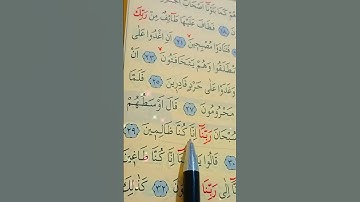 بَلَوْنَا اَصْحَابَ
١٨ فَطَافَ عَلَيْهَا طَائِفٌ مِنْ رَبِّكَ
فَتَنَادَوْا مُصْبِحِينَ ٢١ اَنِ اغْدُوا عَلٰى
وَهُمْ يَتَخَافَتُونَ ٢٣ اَنْ
وَغَدَوْا عَلٰى حَرْدٍ قَادِرِينَ ٢٥ فَلَمَّا
مَحْرُومُونَ ٢٧ قَالَ اَوْسَطُهُمْ
رَبِّنَا اِنَّا كُنَّا ظَالِمِينَ ٢٩
قَالُوا اِنَّا كُنَّا طَاغِينَ
اِلٰى رَبِّنَا ٣٢ كَذٰلِكَ